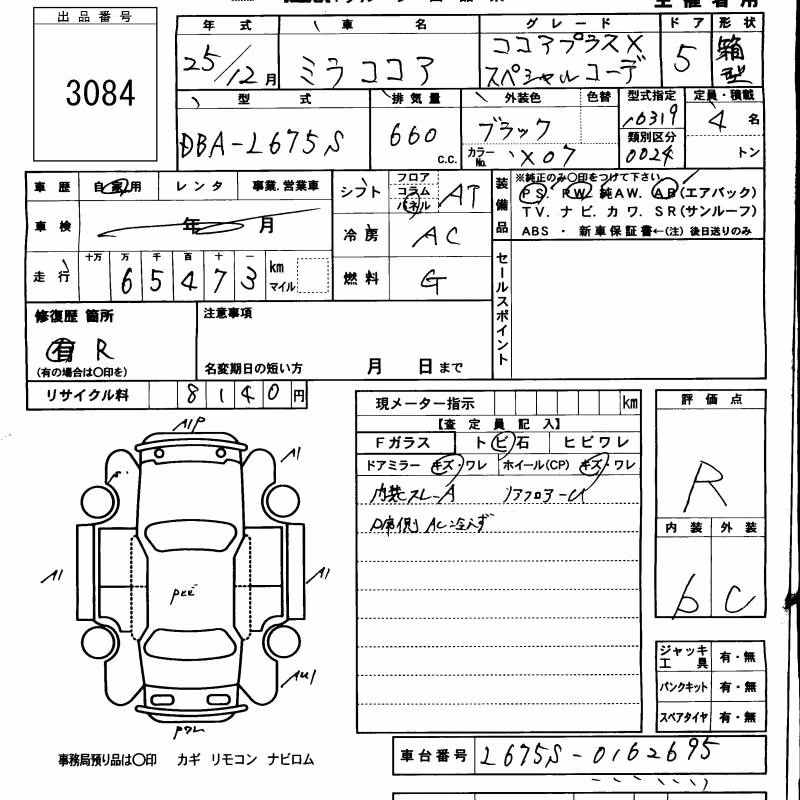 出品番号
3084
年式 車名 グレード ドア 形状
25/12月 ミラココア ココアプラスX スペシャルコーデ 5 箱型
型式 排気量 外装色 色替 型式指定 定員・積載
DBA-L675S 660 c.c. ブラック カラーNo. X07 16319 類別区分 0024 4名 トン
車歴 自家用 レンタ 事業.営業車
車検 年 月
走行 十万 万 千 百 十 一
65473 km マイル
シフト フロア コラム パネル AT
冷房 AC
燃料 G
装備品 ※純正のみ〇印をつけて下さい
PS. PW. 純AW. AB(エアバック)
TV. ナビ. カワ. SR(サンルーフ)
ABS ・ 新車保証書←(注) 後日送りのみ
セールスポイント
修復歴 箇所
有 R
(有の場合は〇印を)
注意事項
名変期日の短い方 月 日まで
リサイクル料 8140円
現メーター指示 km
【査定員記入】
Fガラス トビ石 ヒビワレ
ドアミラー キズ・ワレ ホイール(CP) キズ・ワレ
内装スレ-A リアフロアーU
D席側 AC冷えず
評価点
R
内装 外装
b C
ジャッキ工具 有・無
パンクキット 有・無
スペアタイヤ 有・無
A1P
A1
A1
A1
AU1
事務局預り品は〇印 カギ リモコン ナビロム
車台番号 L675S-0162695